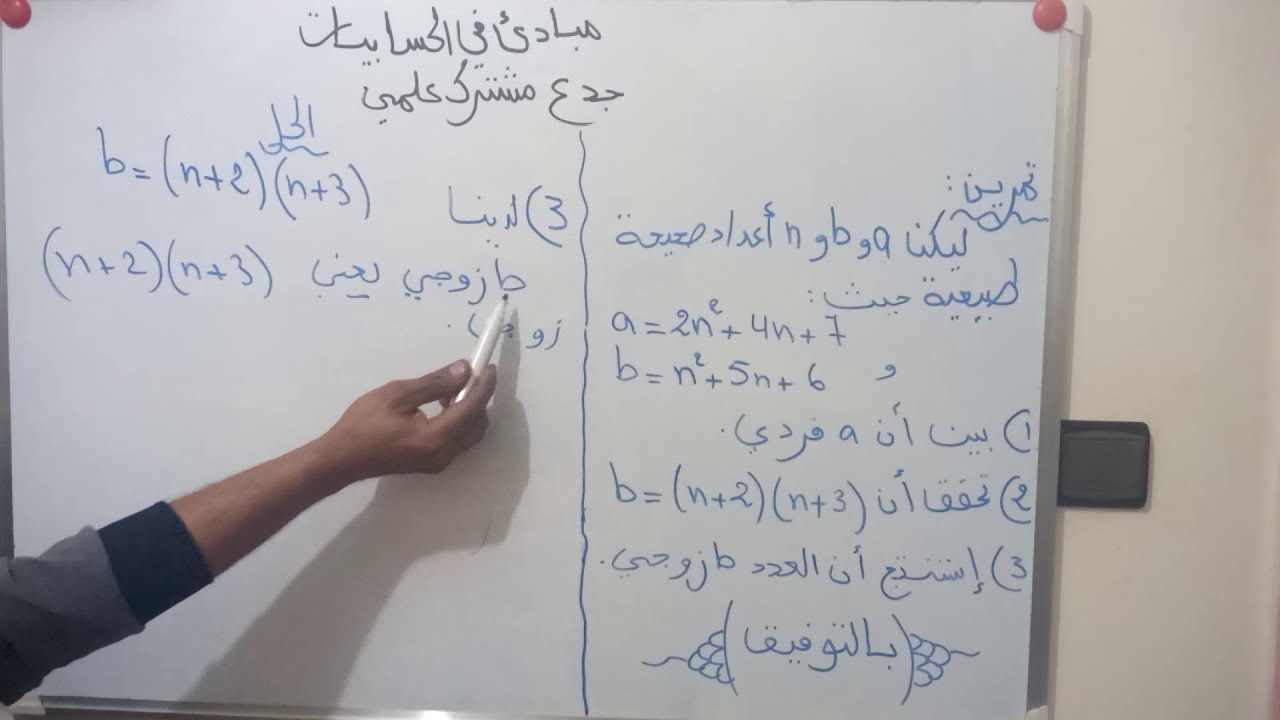 مبادئ في الحسابيات
جدع مشترك علمي
تمرين:
ليكن a و b و n أعداد صحيحة
طبيعية حيث:
a = 2n² + 4n + 7
و b = n² + 5n + 6
1) بين أن a فردي.
2) تحقق أن b = (n+2)(n+3)
3) إستنتج أن العدد b زوجي.
(بالتوفيق)
الحل
3) لدينا b = (n+2)(n+3)
b زوجي يعني (n+2)(n+3)